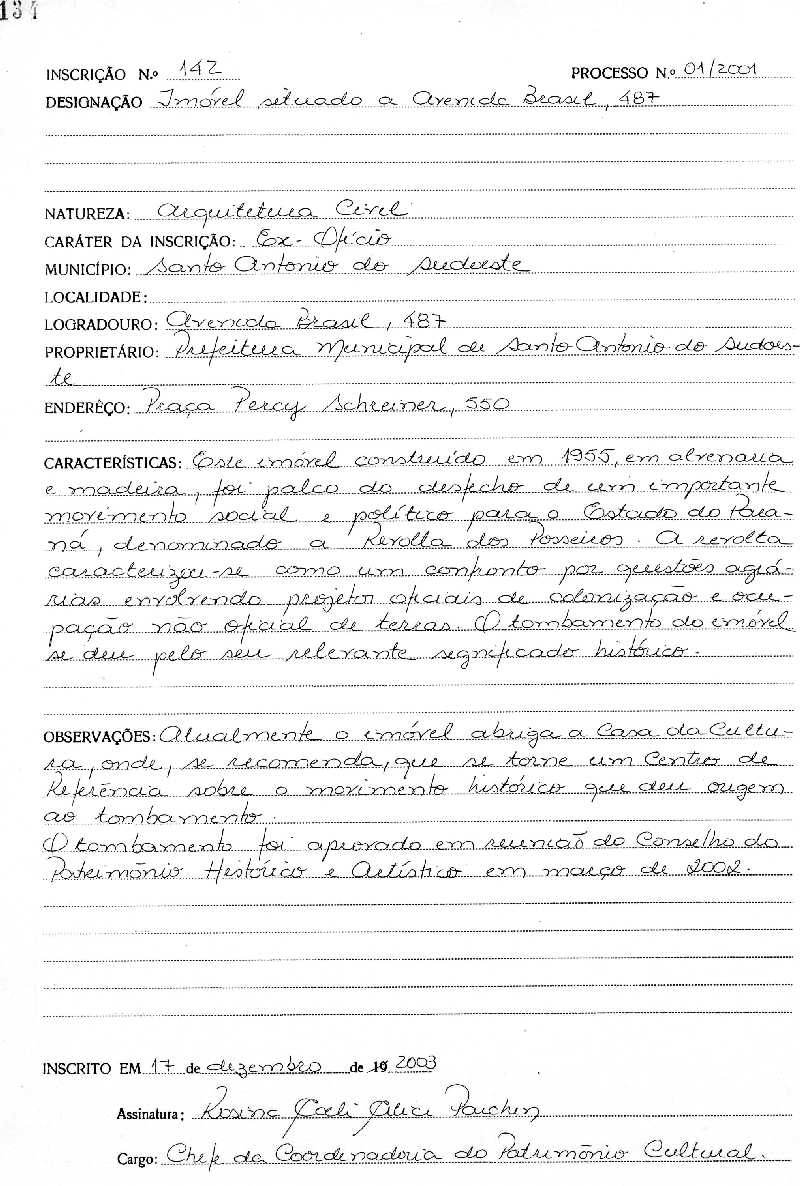 134
INSCRIÇÃO N.º 142 PROCESSO N.º 01/2001
DESIGNAÇÃO Imóvel situado a Avenida Brasil, 487
NATUREZA: Arquitetura Civil
CARÁTER DA INSCRIÇÃO: Ex-Ofício
MUNICÍPIO: Santo Antonio do Sudoeste
LOCALIDADE:
LOGRADOURO: Avenida Brasil, 487
PROPRIETÁRIO: Prefeitura Municipal de Santo Antonio do Sudoes-
te
ENDERÊÇO: Praça Percy Schreiner, 550
CARACTERÍSTICAS: Este imóvel construído em 1955, em alvenaria
e madeira, foi palco do desfecho de um importante
movimento social e político para o Estado do Para-
ná, denominado a Revolta dos Posseiros. A revolta
caracterizou-se como um confronto por questões agrá-
rias envolvendo projetos oficiais de colonização e ocu-
pação não oficial de terras. O tombamento do imóvel
se deu pelo seu relevante significado histórico.
OBSERVAÇÕES: Atualmente o imóvel abriga a Casa da Cultu-
ra, onde, se recomenda, que se torne um Centro de
Referência sobre o movimento histórico que deu origem
ao tombamento.
O tombamento foi aprovado em reunião do Conselho do
Patrimônio Histórico e Artístico em março de 2002.
INSCRITO EM 17 de dezembro de 19 2003
Assinatura: Rosina Coeli Alice Parchen
Cargo: Chefe da Coordenadoria do Patrimônio Cultural.